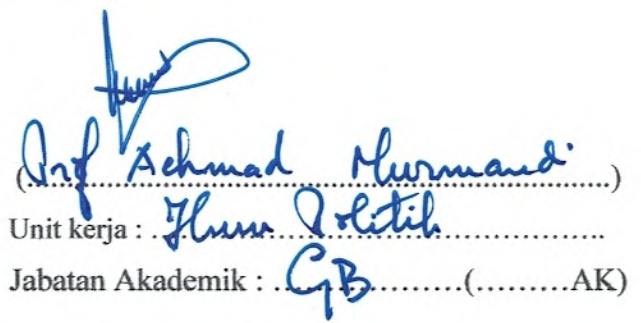 (Prof Achmad Nurmandi)
Unit kerja : Ilmu Politik
Jabatan Akademik : GB (.........AK)